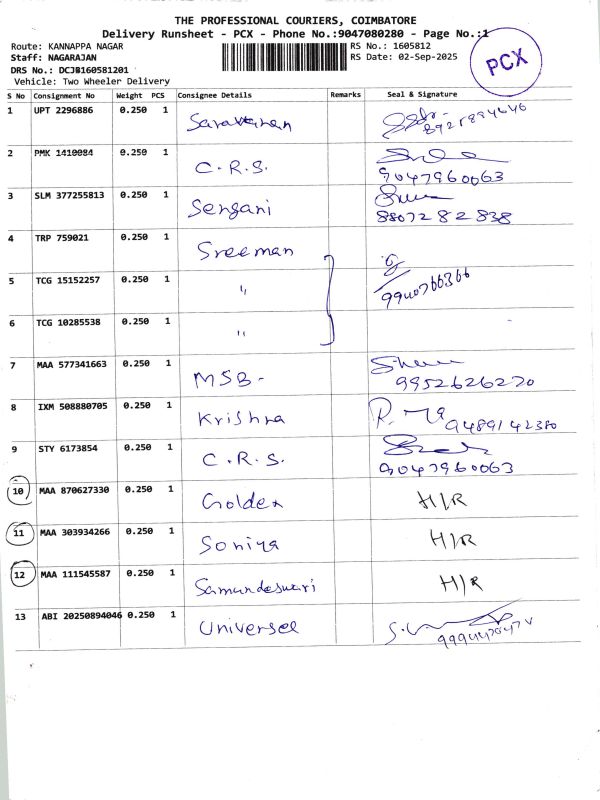 THE PROFESSIONAL COURIERS, COIMBATORE
Delivery Runsheet - PCX - Phone No.:9047080280 - Page No.:1
Route: KANNAPPA NAGAR
Staff: NAGARAJAN
DRS No.: DCJB160581201
Vehicle: Two Wheeler Delivery
RS No.: 1605812
RS Date: 02-Sep-2025
PCX
S No Consignment No Weight PCS Consignee Details Remarks Seal & Signature
1 UPT 2296886 0.250 1 Saravanan
2 PMK 1410084 0.250 1 C.R.S. 9047960063
3 SLM 377255813 0.250 1 Sengani 8807282838
4 TRP 759021 0.250 1 Sreeman
5 TCG 15152257 0.250 1 " 9940766366
6 TCG 10285538 0.250 1 "
7 MAA 577341663 0.250 1 MSB- 9952626270
8 IXM 508880705 0.250 1 Krishna 9489142380
9 STY 6173854 0.250 1 C.R.S. 9047960063
10 MAA 870627330 0.250 1 Golden H/R
11 MAA 303934266 0.250 1 Soniya H/R
12 MAA 111545587 0.250 1 Samundeswari H/R
13 ABI 20250894046 0.250 1 Universel